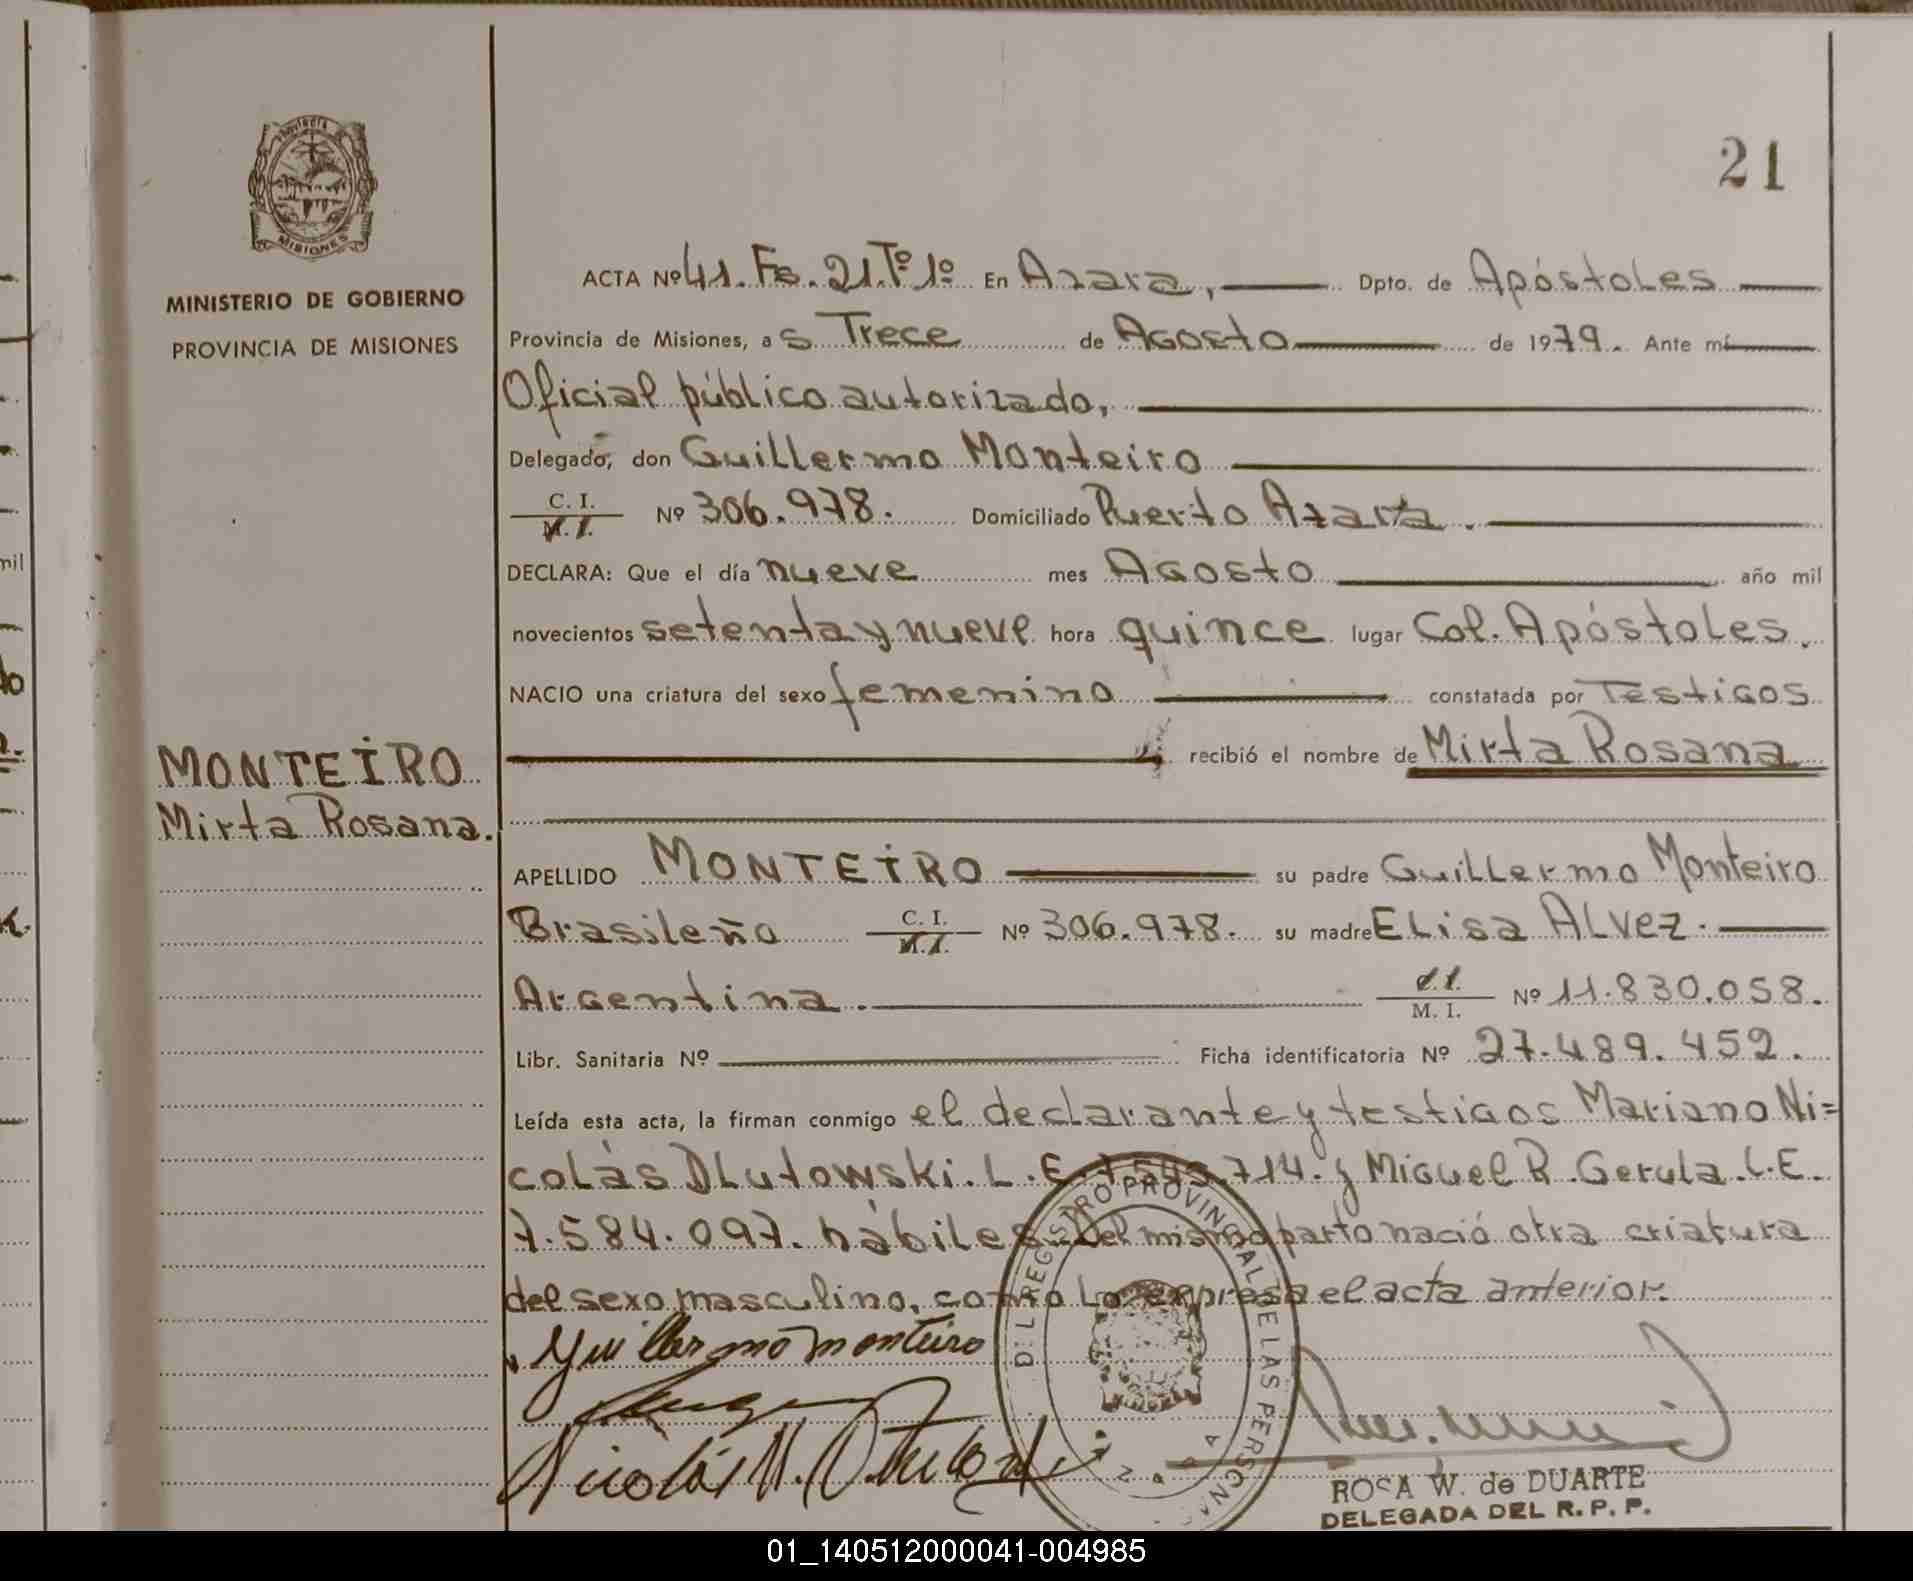 21
PROVINCIA DE
MISIONES
MINISTERIO DE GOBIERNO
PROVINCIA DE MISIONES
ACTA Nº 41. Fs. 21. Tº 1º En Azara, Dpto. de Apóstoles
Provincia de Misiones, a s Trece de Agosto de 1979. Ante mí
Oficial público autorizado,
Delegado, don Guillermo Monteiro
C. I.
M. I.
Nº 306.978. Domiciliado Puerto Azara.
DECLARA: Que el día nueve mes Agosto año mil
novecientos setenta y nueve hora quince lugar Col. Apóstoles.
NACIO una criatura del sexo femenino constatada por Testigos
recibió el nombre de Mirta Rosana
MONTEIRO
Mirta Rosana.
APELLIDO MONTEIRO su padre Guillermo Monteiro
Brasileño C. I. M. I. Nº 306.978. su madre Elisa Alvez.
Argentina. C. I. M. I. Nº 11.830.058.
Libr. Sanitaria Nº Ficha identificatoria Nº 27.489.452.
Leída esta acta, la firman conmigo el declarante y testigos Mariano Ni=
colás Dlutowski. L.E. 7.543.714. y Miguel R. Gerula. L.E.
7.584.097. hábiles. Del mismo parto nació otra criatura
del sexo masculino, como lo expresa el acta anterior.
Guillermo monteiro
Nicolás M.
REGISTRO PROVINCIAL DE LAS PERSONAS
AZARA
ROSA W. de DUARTE
DELEGADA DEL R. P. P.
mil
01_140512000041-004985